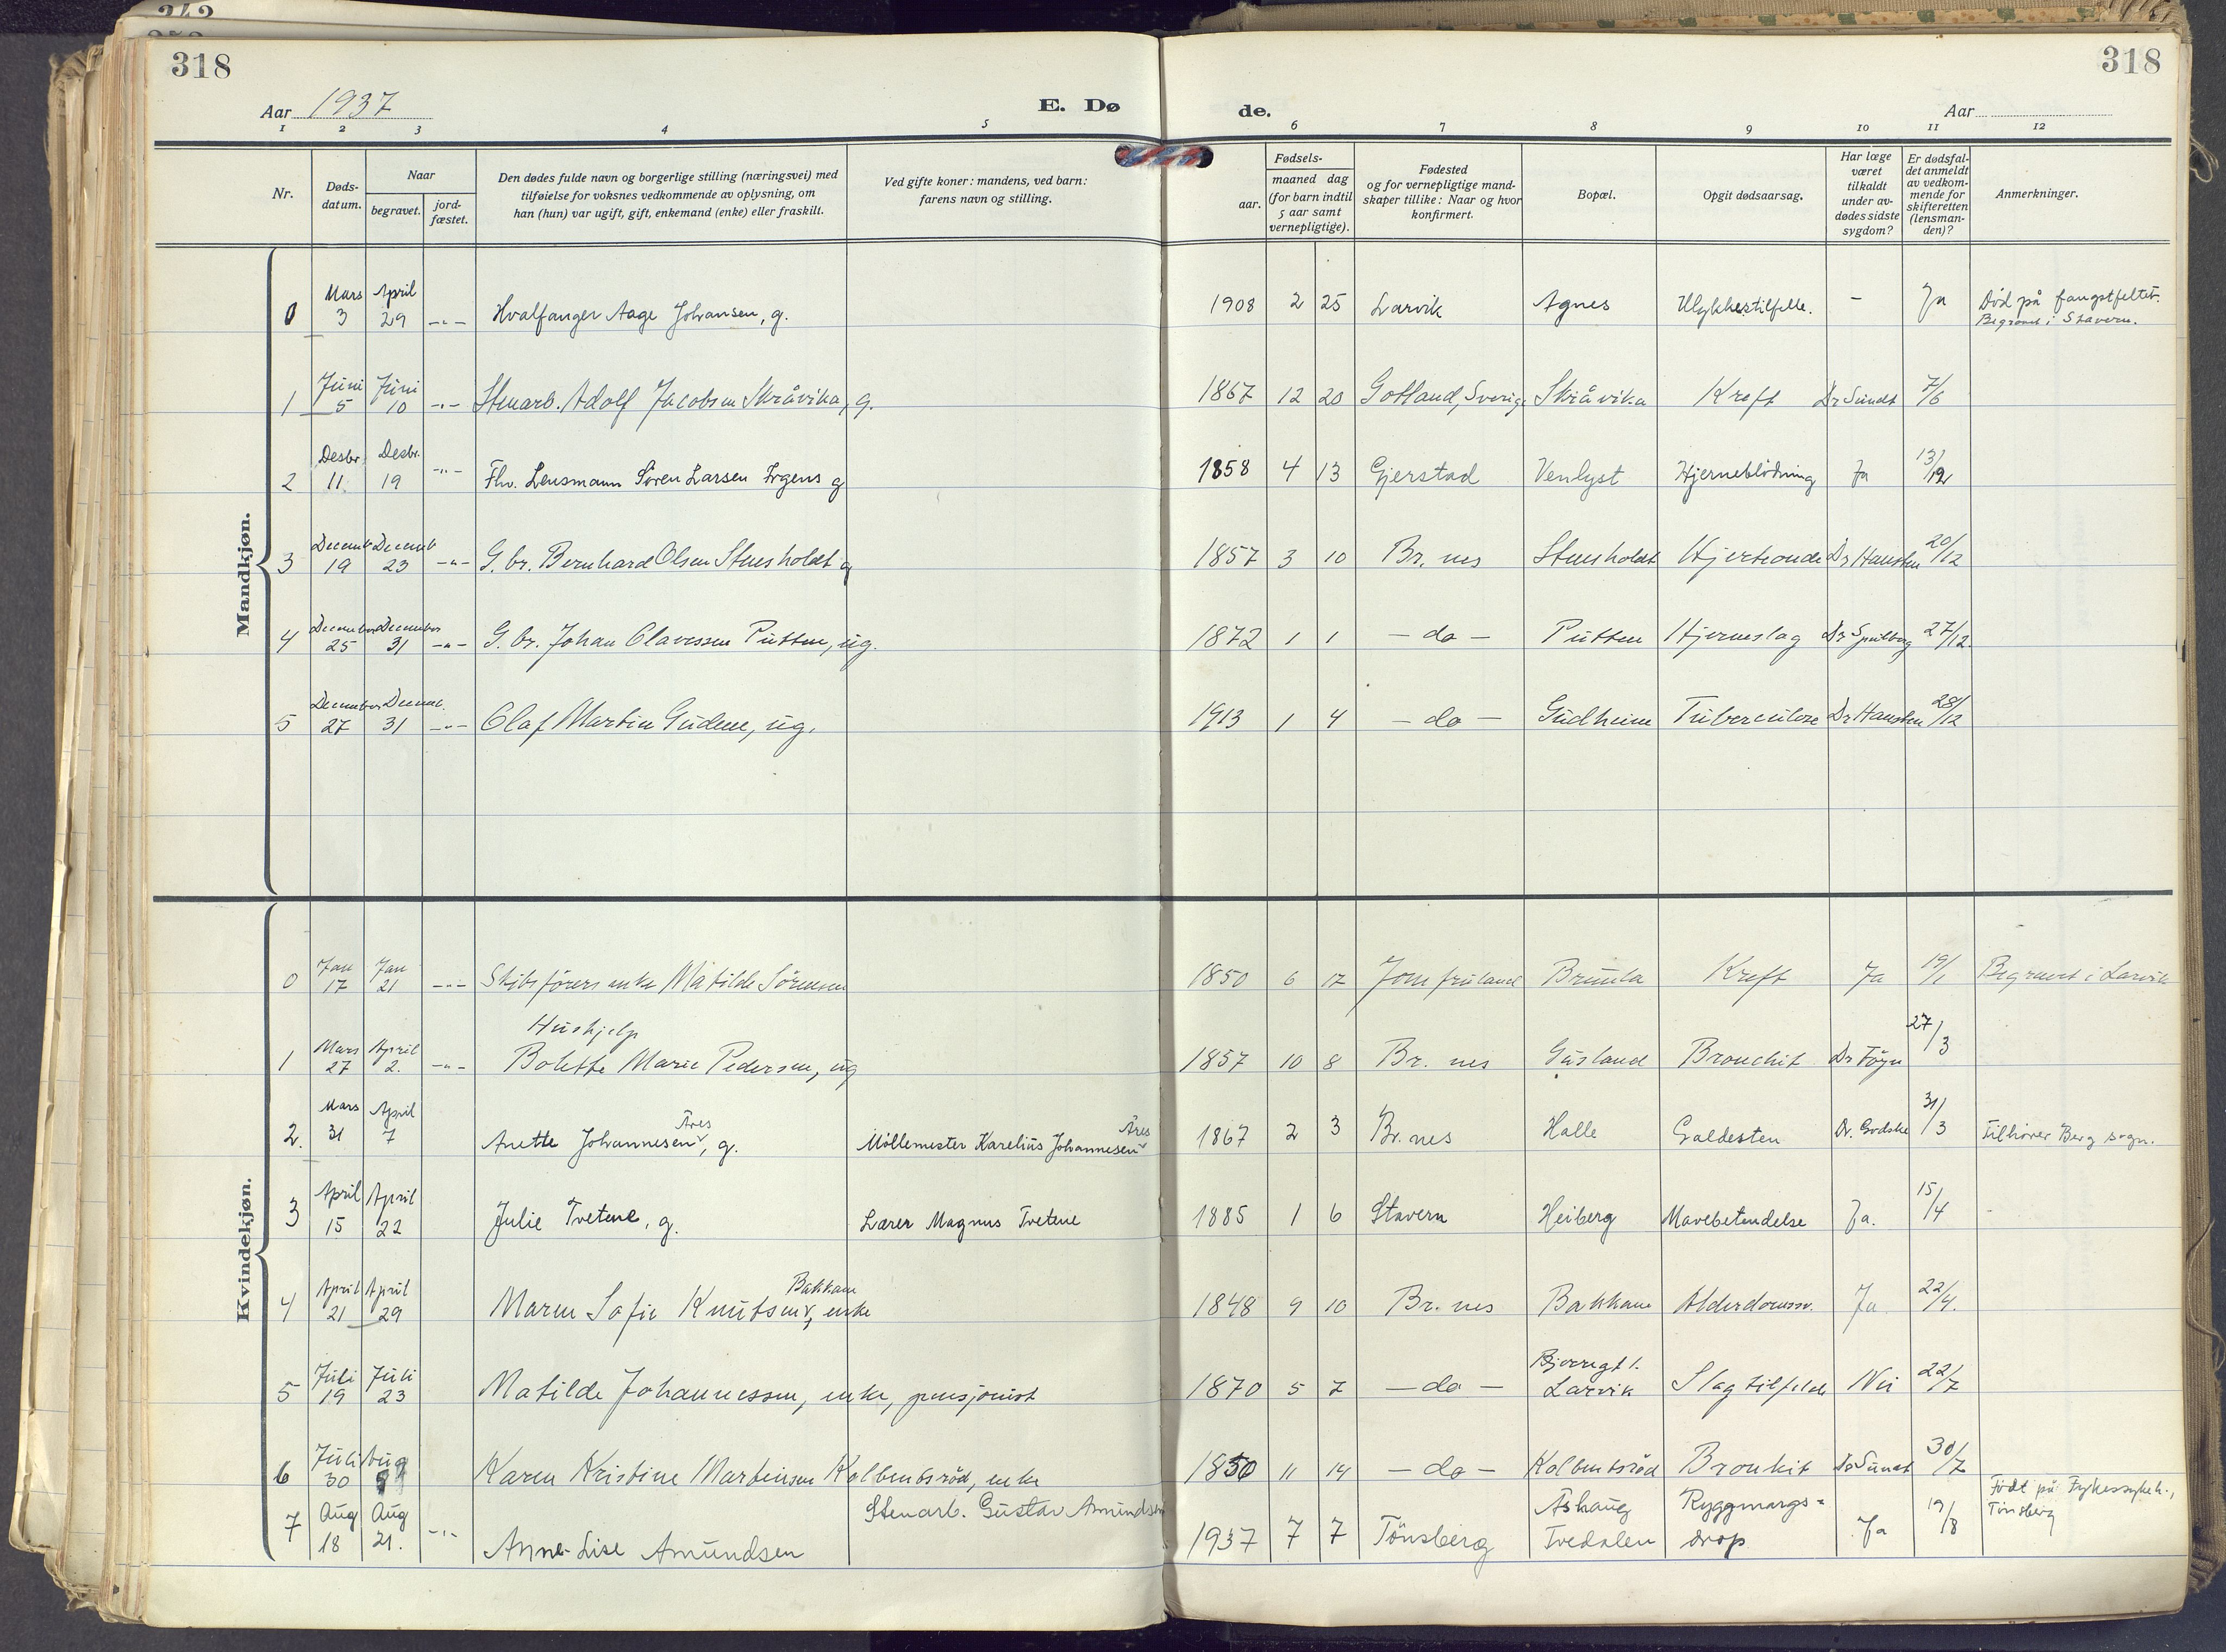 342
318
318
Aar 1937
E. Dø
de.
Aar
1 2 3 4 5 6 7 8 9 10 11 12
Nr.
Døds-
datum.
Naar
begravet.
jord-
fæstet.
Den dødes fulde navn og borgerlige stilling (næringsvei) med
tilføielse for voksnes vedkommende av oplysning, om
han (hun) var ugift, gift, enkemand (enke) eller fraskilt.
Ved gifte koner: mandens, ved barn:
farens navn og stilling.
Fødsels-
aar.
maaned dag
(for barn indtil
5 aar samt
vernepligtige).
Fødested
og for vernepligtige mand-
skaper tillike: Naar og hvor
konfirmert.
Bopæl.
Opgit dødsaarsag.
Har læge
været
tilkaldt
under av-
dødes sidste
sygdom?
Er dødsfal-
det anmeldt
av vedkom-
mende for
skifteretten
(lensman-
den)?
Anmerkninger.
Mandkjøn.
0 Mars 3 April 29 -"- Hvalfanger Aage Johansen, g. 1908 2 25 Larvik Agnes Ulykkestilfelle. - Ja Död på fangstfeltet.
Begravet i Stavern.
1 Juni 5 Juni 10 -"- Stenarb. Adolf Jacobsen Skråvika, g. 1867 12 20 Gotland, Sverige Skråvika Kreft Dr Sundt 7/6
2 Desbr. 11. Desbr. 19 -"- Fhv. Lensmann Sören Larsen Irgens g 1858 4 13 Gjerstad Venlyst Hjerneblödning Ja 13/12
3 Decemb 19 Decemb 23 -"- G. br. Bernhard Olsen Stensholdt g 1857 3 10 Br. nes Stensholdt Hjerteonde Dr Hansten 20/12
4 December 25 December 31 -"- G. br. Johan Olavessen Putten, ug. 1872 1 1 - do - Putten Hjerneslag Dr 27/12.
5 December 27 Decemb. 31 -"- Olaf Martin Gudem, ug. 1913 1 4 - do - Gudheim Tuberculose Dr Hansten 28/12
Kvindekjøn.
0 Jan 17 Jan 21 -"- Skibsförers enke Matilde Sörensen 1850 6 17 Jomfruland Brunla Kreft Ja 19/1 Begravet i Larvik
Hushjelp
1 Mars 27 April 2. -"- Bolette Marie Pedersen, ug 1857 10 8 Br. nes Gusland Bronchit Dr Föyn 27/3
Åres Åres
2. Mars 31 April 7 Anette Johannesen, g. Möllemester Karelius Johannesen 1867 2 3 Br. nes Halle Galdesten Dr. Godske 31/3 Tilhörer Berg sogn.
3 April 15 April 22 Julie Tvetene, g. Lærer Magnus Tvetene 1885 1 6 Stavern Heiberg Mavebetendelse Ja. 15/4 -
Bakkane
4 April 21 April 29 Maren Sofie Knutsen, enke 1848 9 10 Br. nes Bakkane Alderdomssv. Ja 22/4.
5 Juli 19 Juli 23 Matilde Johannessen, enke, pensjonist 1870 5 7 - do - Bjerregt 1. Larvik Slagtilfelde Nei 22/7
6 Juli 30 Aug Karen Kristine Martinsen Kolbentsröd, enke 1850 11 14 - do - Kolbentsröd Bronkit Dr Sundt 30/7
7 Aug 18 Aug 21. -"- Anne-Lise Amundsen Stenarb. Gustav Amundsen 1937 7 7 Tönsberg Åshaug Tvedalen Ryggmargs=
drop Ja 19/8 Födt på Fylkessykeh.,
Tönsberg